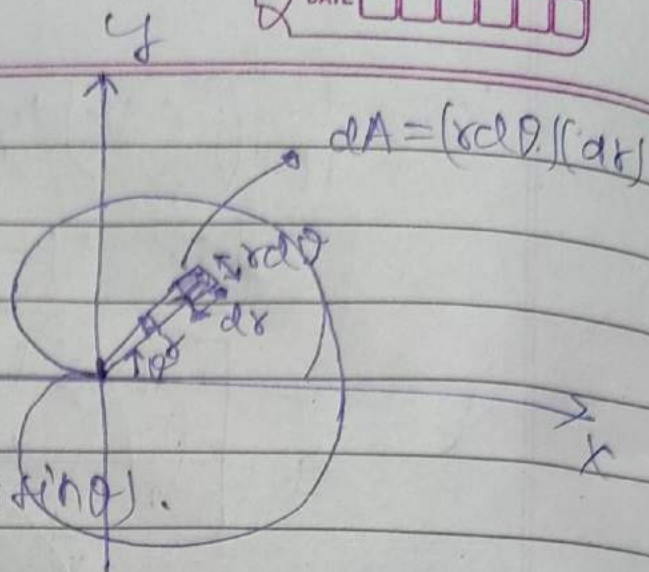 DATE
y
dA = (rdθ)(dr)
rdθ
dr
θ r
X
sinθ).